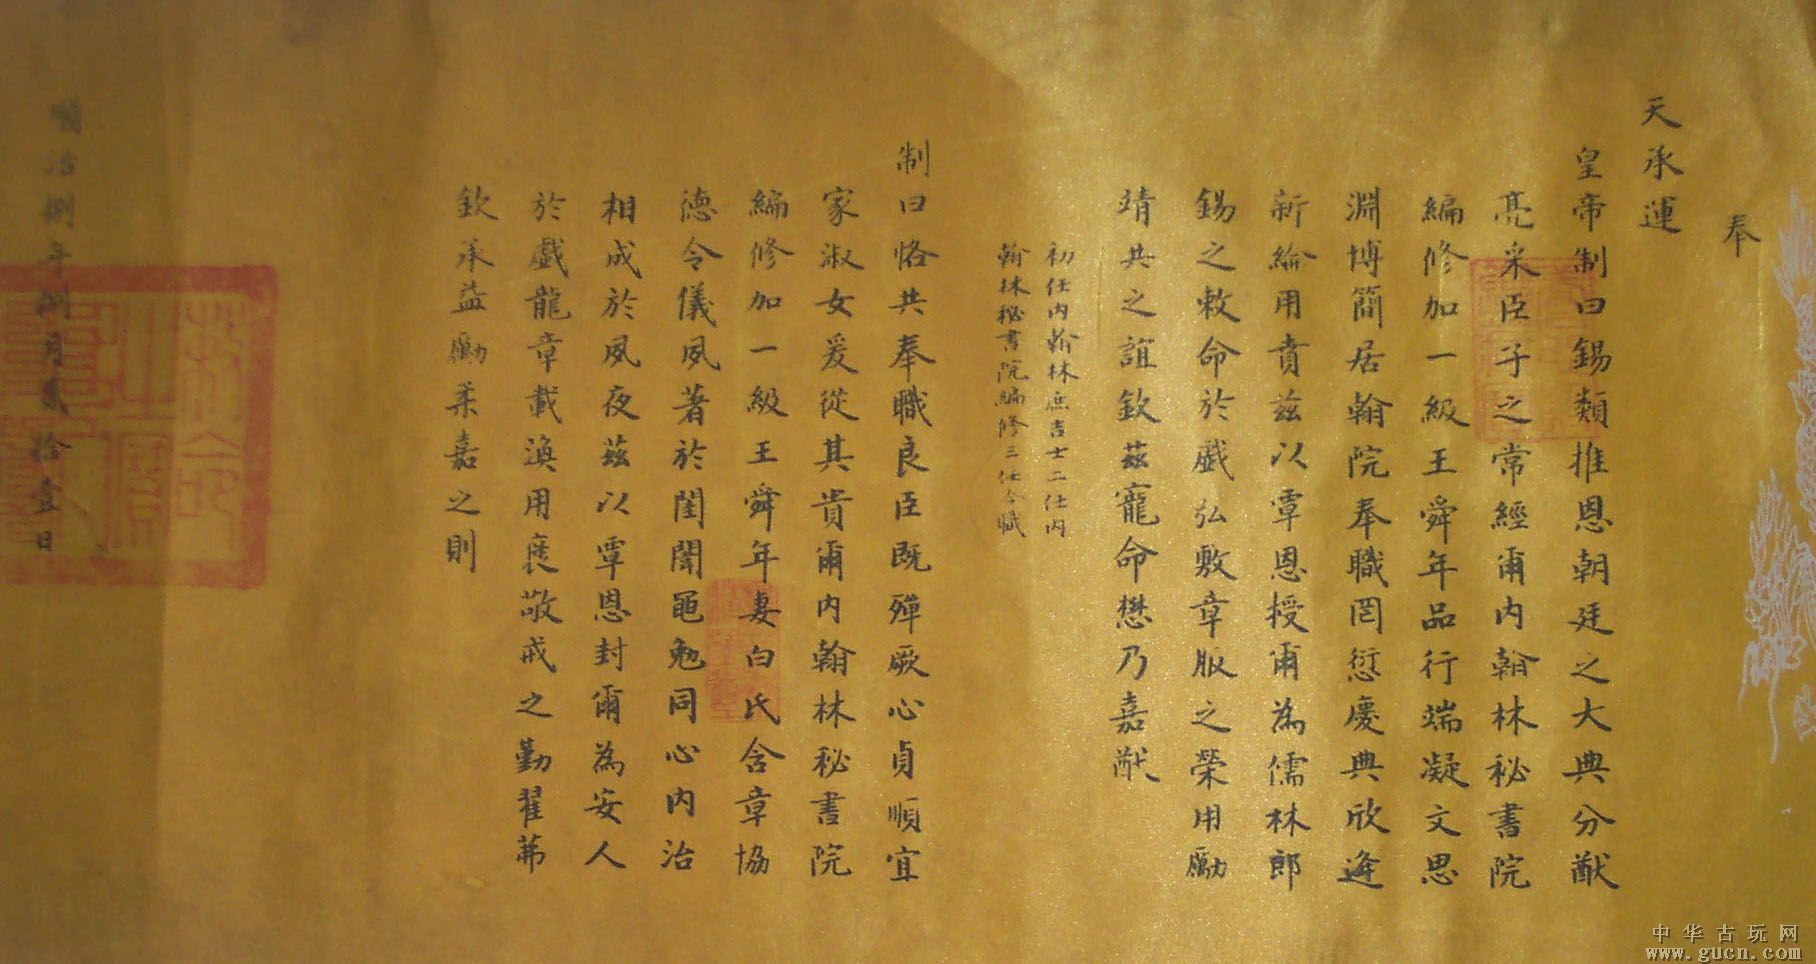 奉
天承運
皇帝制曰錫類推恩朝廷之大典分猷
亮采臣子之常經爾內翰林秘書院
編修加一級王舜年品行端凝文思
淵博簡居翰院奉職罔愆慶典欣逢
新綸用賁茲以覃恩授爾為儒林郎
錫之敕命於戲弘敷章服之榮用勵
靖共之誼欽茲寵命懋乃嘉猷
初任內翰林庶吉士二任內
翰林秘書院編修三任今職
制曰恪共奉職良臣既殫厥心貞順宜
家淑女爰從其貴爾內翰林秘書院
編修加一級王舜年妻白氏含章協
德令儀夙著於閨闈黽勉同心內治
相成於夙夜茲以覃恩封爾為安人
於戲龍章載渙用褒敬戒之勤翟茀
欽承益勵柔嘉之則
治捌年捌月貳拾壹日
中华古玩网
www.gucn.com